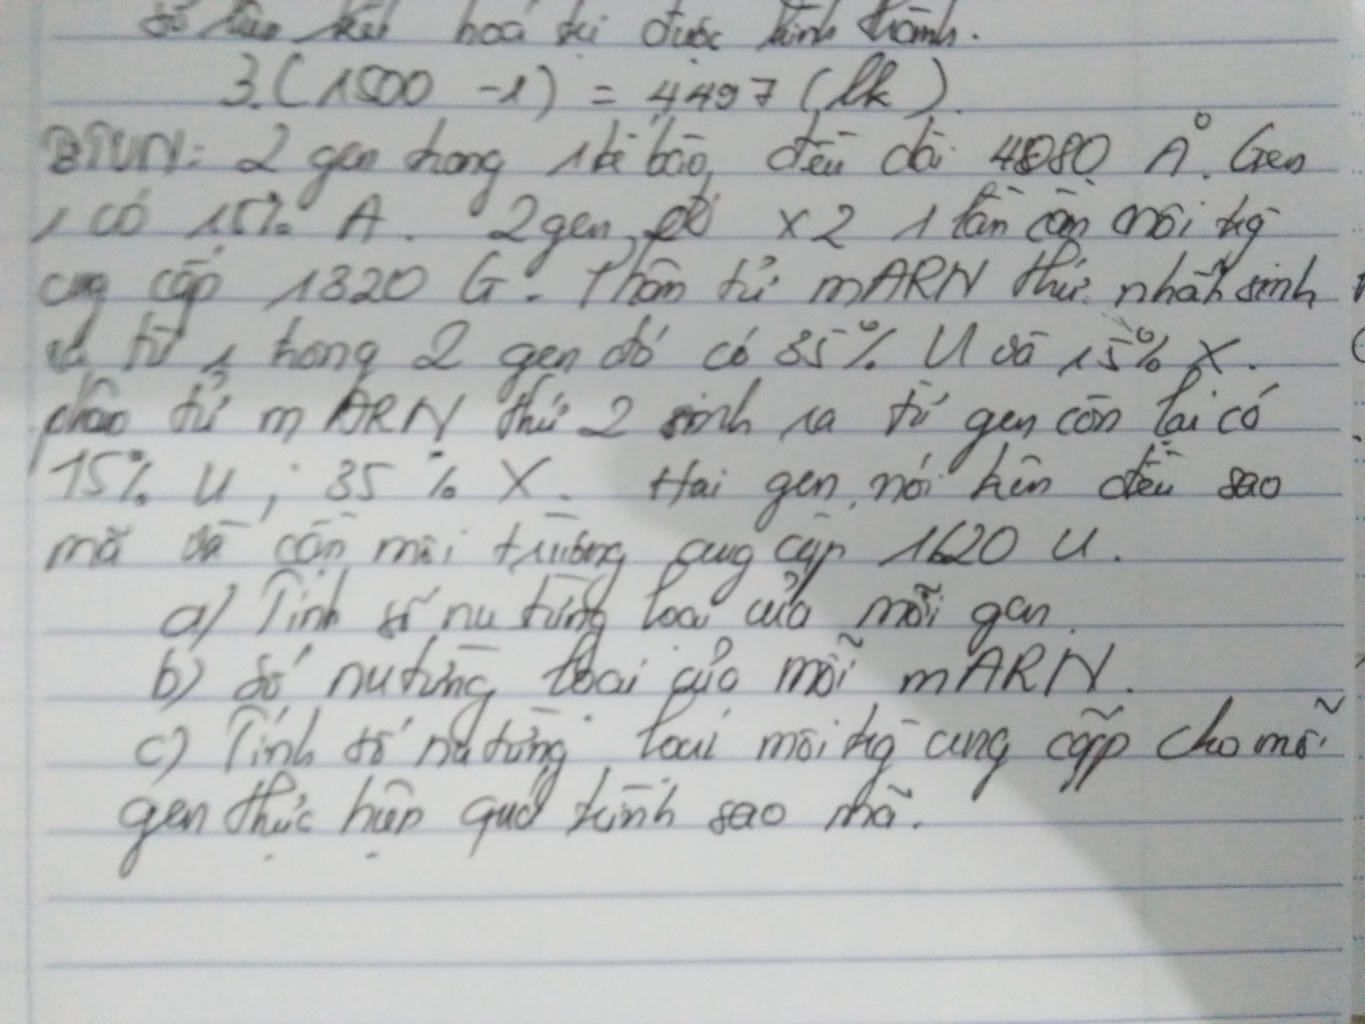 số liên kết hoá trị được hình thành.
3.(1500 - 1) = 4497 (lk).
BTVN: 2 gen trong 1 tế bào, đều dài 4080 A°. Gen
1 có 15% A. 2 gen đó x2 1 lần cần môi trg
cung cấp 1320 G. Phân tử mARN thứ nhất sinh
ra từ 1 trong 2 gen đó có 35% U và 15% X.
phân tử mARN thứ 2 sinh ra từ gen còn lại có
15% U; 35% X. Hai gen nói trên đều sao
mã và cần môi trường cung cấp 1620 U.
a) Tính số nu từng loại của mỗi gen.
b) Số nu từng loại của mỗi mARN.
c) Tính số nu từng loại môi trg cung cấp cho mỗi
gen thực hiện quá trình sao mã.